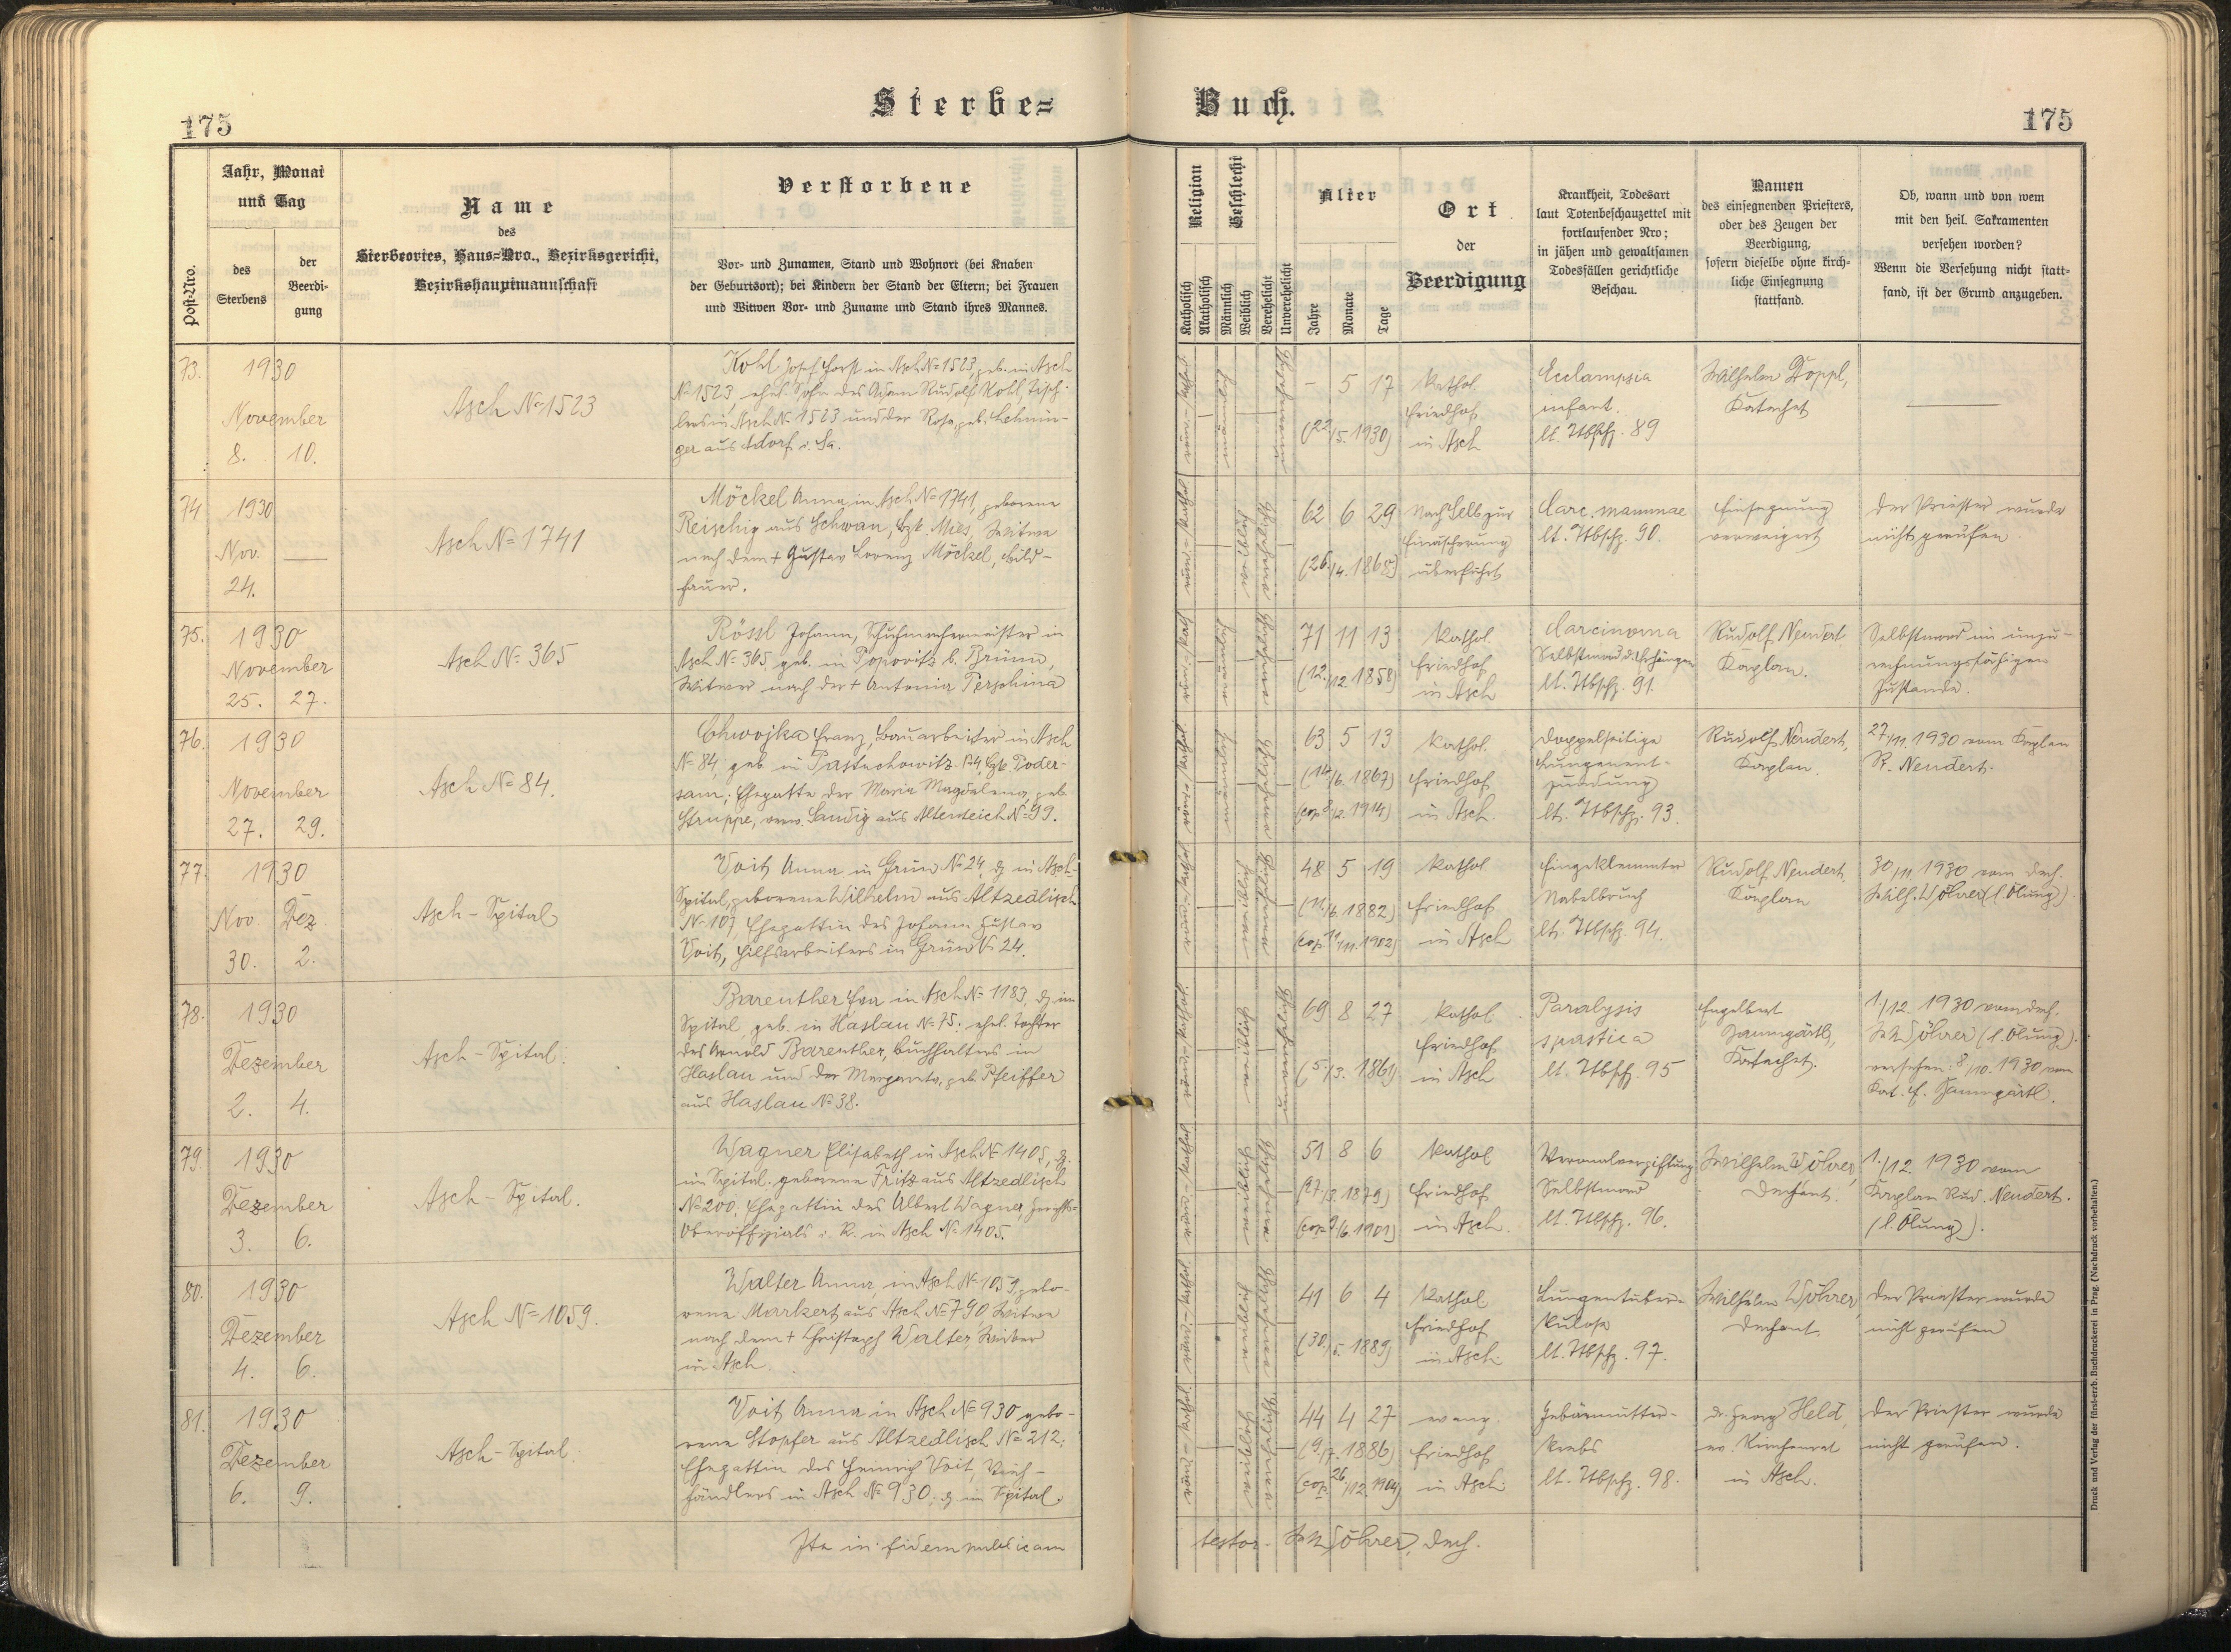 Sterbe=
Buch.
175
175
Post-Nro.
Jahr, Monat
und Tag
des
Sterbens
der
Beerdi-
gung
Name
des
Sterbeortes, Haus=Nro., Bezirksgericht,
Bezirkshauptmannschaft
Verstorbene
Vor- und Zunamen, Stand und Wohnort (bei Knaben
der Geburtsort); bei Kindern der Stand der Eltern; bei Frauen
und Witwen Vor- und Zuname und Stand ihres Mannes.
Religion
Katholisch
Akatholisch
Geschlecht
Männlich
Weiblich
Verehelicht
Unverehelicht
Alter
Jahre
Monate
Tage
Ort
der
Beerdigung
Krankheit, Todesart
laut Totenbeschauzettel mit
fortlaufender Nro;
in jähen und gewaltsamen
Todesfällen gerichtliche
Beschau.
Namen
des einsegnenden Priesters,
oder des Zeugen der
Beerdigung,
sofern dieselbe ohne kirch-
liche Einsegnung
stattfand.
Ob, wann und von wem
mit den heil. Sakramenten
versehen worden?
Wenn die Versehung nicht statt-
fand, ist der Grund anzugeben.
73.
1930
November
8. 10.
Asch № 1523
Kohl Josef Horst in Asch № 1523, geb. in Asch
№ 1523, ehel. Sohn des Adam Rudolf Kohl, Tisch-
lers in Asch № 1523 und der Rosa, geb. Lehnin-
ger aus Adorf i. Sa.
– 5 17
(22/5. 1930)
Kathol.
Friedhof
in Asch
Ecclampsia
infant.
lt. Ttbschz. 89
Wilhelm Doppl,
Katechet
74
1930
Nov. —
24.
Asch № 1741
Möckel Anna, in Asch № 1741, geborene
Reischig aus Schwan, Bzk. Mies, Witwe
nach dem + Gustav Lorenz Möckel, Bild-
hauer.
62 6 29
(26./4. 1868)
Nach Selb zur
Einäscherung
überführt
Carc. mammae
lt. Ttbschz. 90.
Einsegnung
verweigert
Der Priester wurde
nicht gerufen.
75.
1930
November
25. 27.
Asch № 365
Rössl Johann, Schuhmachermeister in
Asch № 365, geb. in Popovitz b. Brünn,
Witwer nach der + Antonia Perschina
71 11 13
(12./12. 1858)
Kathol.
Friedhof
in Asch
Carcinoma
Selbstmord d. Erhängen
lt. Ttbschz. 91.
Rudolf Nendert
Kaplan.
Selbstmord im unzu-
rechnungsfähigen
Zustande.
76.
1930
November
27. 29.
Asch № 84.
Chwojka Franz, Bauarbeiter in Asch
№ 84, geb. in Pastuchowitz 54, Bzk. Poder-
sam; Ehegatte der Maria Magdalena, geb.
Struppe, verw. Sandig aus Altenteich № 99.
63 5 13
(14./6. 1867)
(cop 8./2. 1914)
Kathol.
Friedhof
in Asch.
Doppelseitige
Lungenent-
zündung
lt. Ttbschz. 93.
Rudolf Nendert,
Kaplan.
27/11. 1930 vom Kaplan
R. Nendert.
77.
1930
Nov. Dez.
30. 2.
Asch – Spital
Voit Anna in Grün № 24, dz. in Asch-
Spital, geborene Wilhelm aus Altzedlisch
№ 107, Ehegattin des Johann Gustav
Voit, Hilfsarbeiters in Grün № 24.
48 5 19
(11./6. 1882)
(cop 11/11. 1902)
Kathol.
Friedhof
in Asch
Eingeklemmter
Nabelbruch
lt. Ttbschz. 94.
Rudolf Nendert,
Kaplan
30/11 1930 vom Dech.
Wilh. Wöhrer (l. Ölung).
78.
1930
Dezember
2. 4.
Asch – Spital.
Bareuther Eva in Asch № 1183, dz. im
Spital, geb. in Haslau № 75: ehel. Tochter
des Arnold Bareuther, Buchhalters in
Haslau und der Margareta, geb. Pfeiffer
aus Haslau № 38.
69 8 27
(5./3. 1861)
Kathol.
Friedhof
in Asch
Paralysis
spastica
lt. Ttbschz. 95
Engelbert
Zaumgärtl,
Katechet.
1./12. 1930 vom Dech.
W. Wöhrer (l. Ölung).
versehen: 8/10. 1930 von
Kat. E. Zaumgärtl.
79.
1930
Dezember
3. 6.
Asch – Spital.
Wagner Elisabeth in Asch № 1405, dz.
im Spital, geborene Fritz aus Altzedlisch
№ 200, Ehegattin des Albert Wagner, Gerichts-
Oberoffizials i. R. in Asch № 1405.
51 8 6
(27./3. 1879)
Kathol.
Friedhof
in Asch.
Veronalvergiftung
Selbstmord
lt. Ttbschz. 96.
Wilhelm Wöhrer,
Dechant.
1./12 1930 vom
Kaplan Rud. Nendert.
(l. Ölung).
80.
1930
Dezember
4. 6.
Asch № 1059.
Walter Anna, in Asch № 1059, gebo-
rene Markert aus Asch № 790, Witwe
nach dem + Christoph Walter, Weber
in Asch.
41 6 4
(30./5. 1889)
Kathol.
Friedhof
in Asch
Lungentuber-
kulose
lt. Ttbschz. 97.
Wilhelm Wöhrer,
Dechant
Der Priester wurde
nicht gerufen
81.
1930
Dezember
6. 9.
Asch – Spital.
Voit Anna in Asch № 930 gebo-
rene Stopfer aus Altzedlisch № 212;
Ehegattin des Heinrich Voit, Vieh-
händlers in Asch № 930. dz. im Spital.
44 4 27
(9./7. 1886)
(cop. 26./12. 1904)
evang.
Friedhof
in Asch.
Gebärmutter-
krebs
lt. Ttbschz. 98.
Dr. Georg Held,
ev. Kirchenrat
in Asch.
Der Priester wurde
nicht gerufen.
Ita in fidem publicam
testor. W. Wöhrer, Dech.
Druck und Verlag der fürst-erzb. Buchdruckerei in Prag. (Nachdruck vorbehalten.)